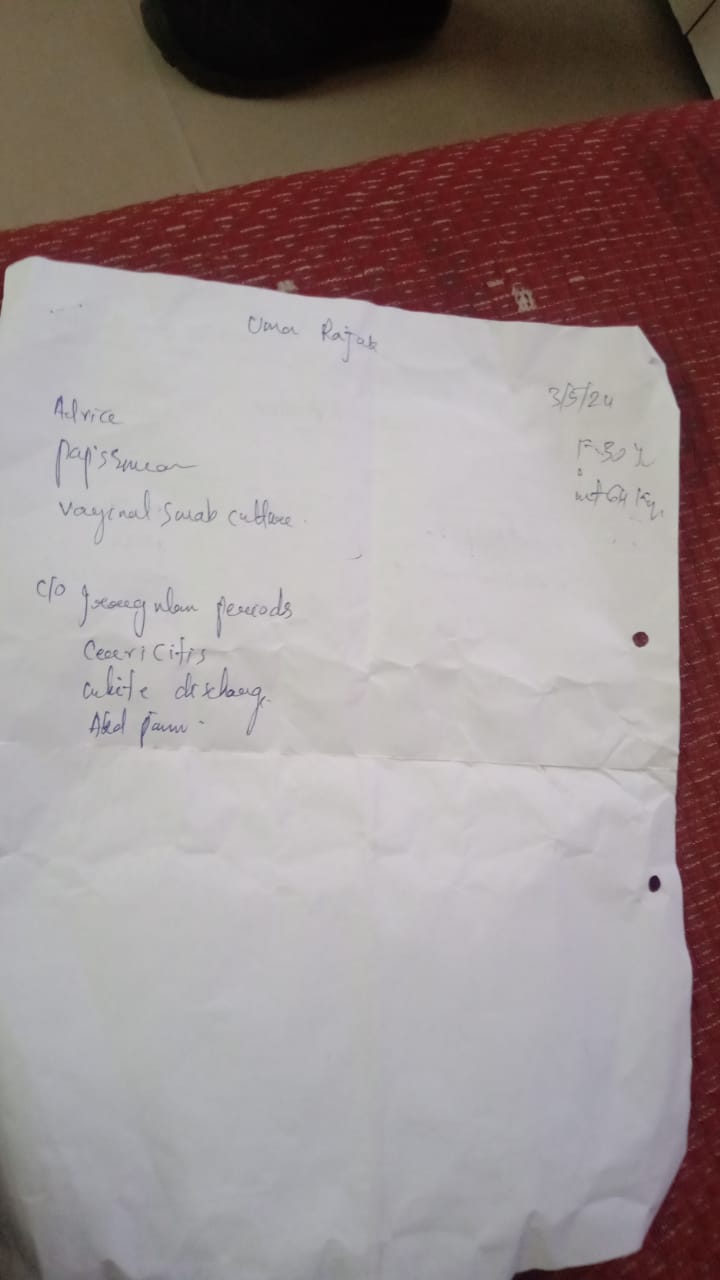 Uma Rajak
3/5/24
Advice
F-30y
pap's smear
wt 64 Kg
vaginal swab culture
c/o Irregular periods
Cervicitis
white discharge
Abd pain